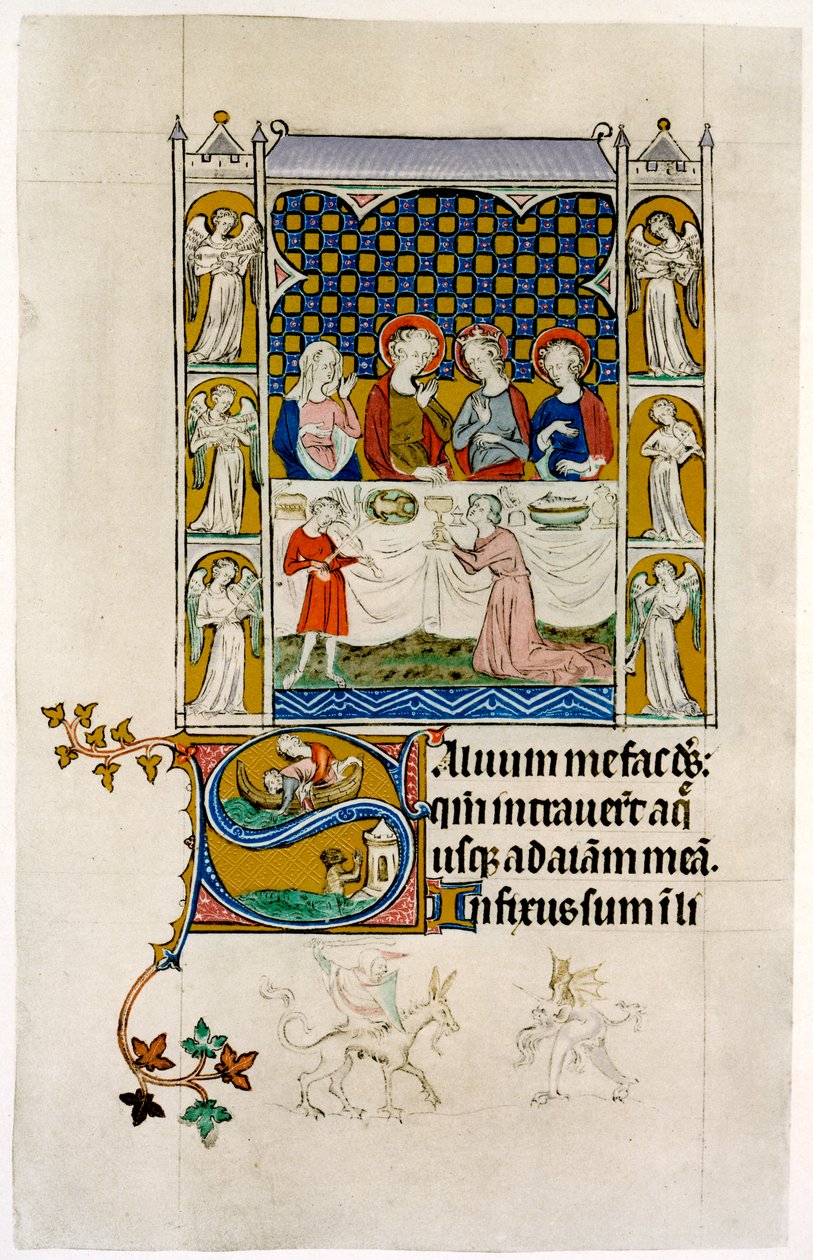 Saluum me fac d̅s:
qm̅ intrauer̅t aq̅e
usq; ad aīam meā.
Infixus sum ī li